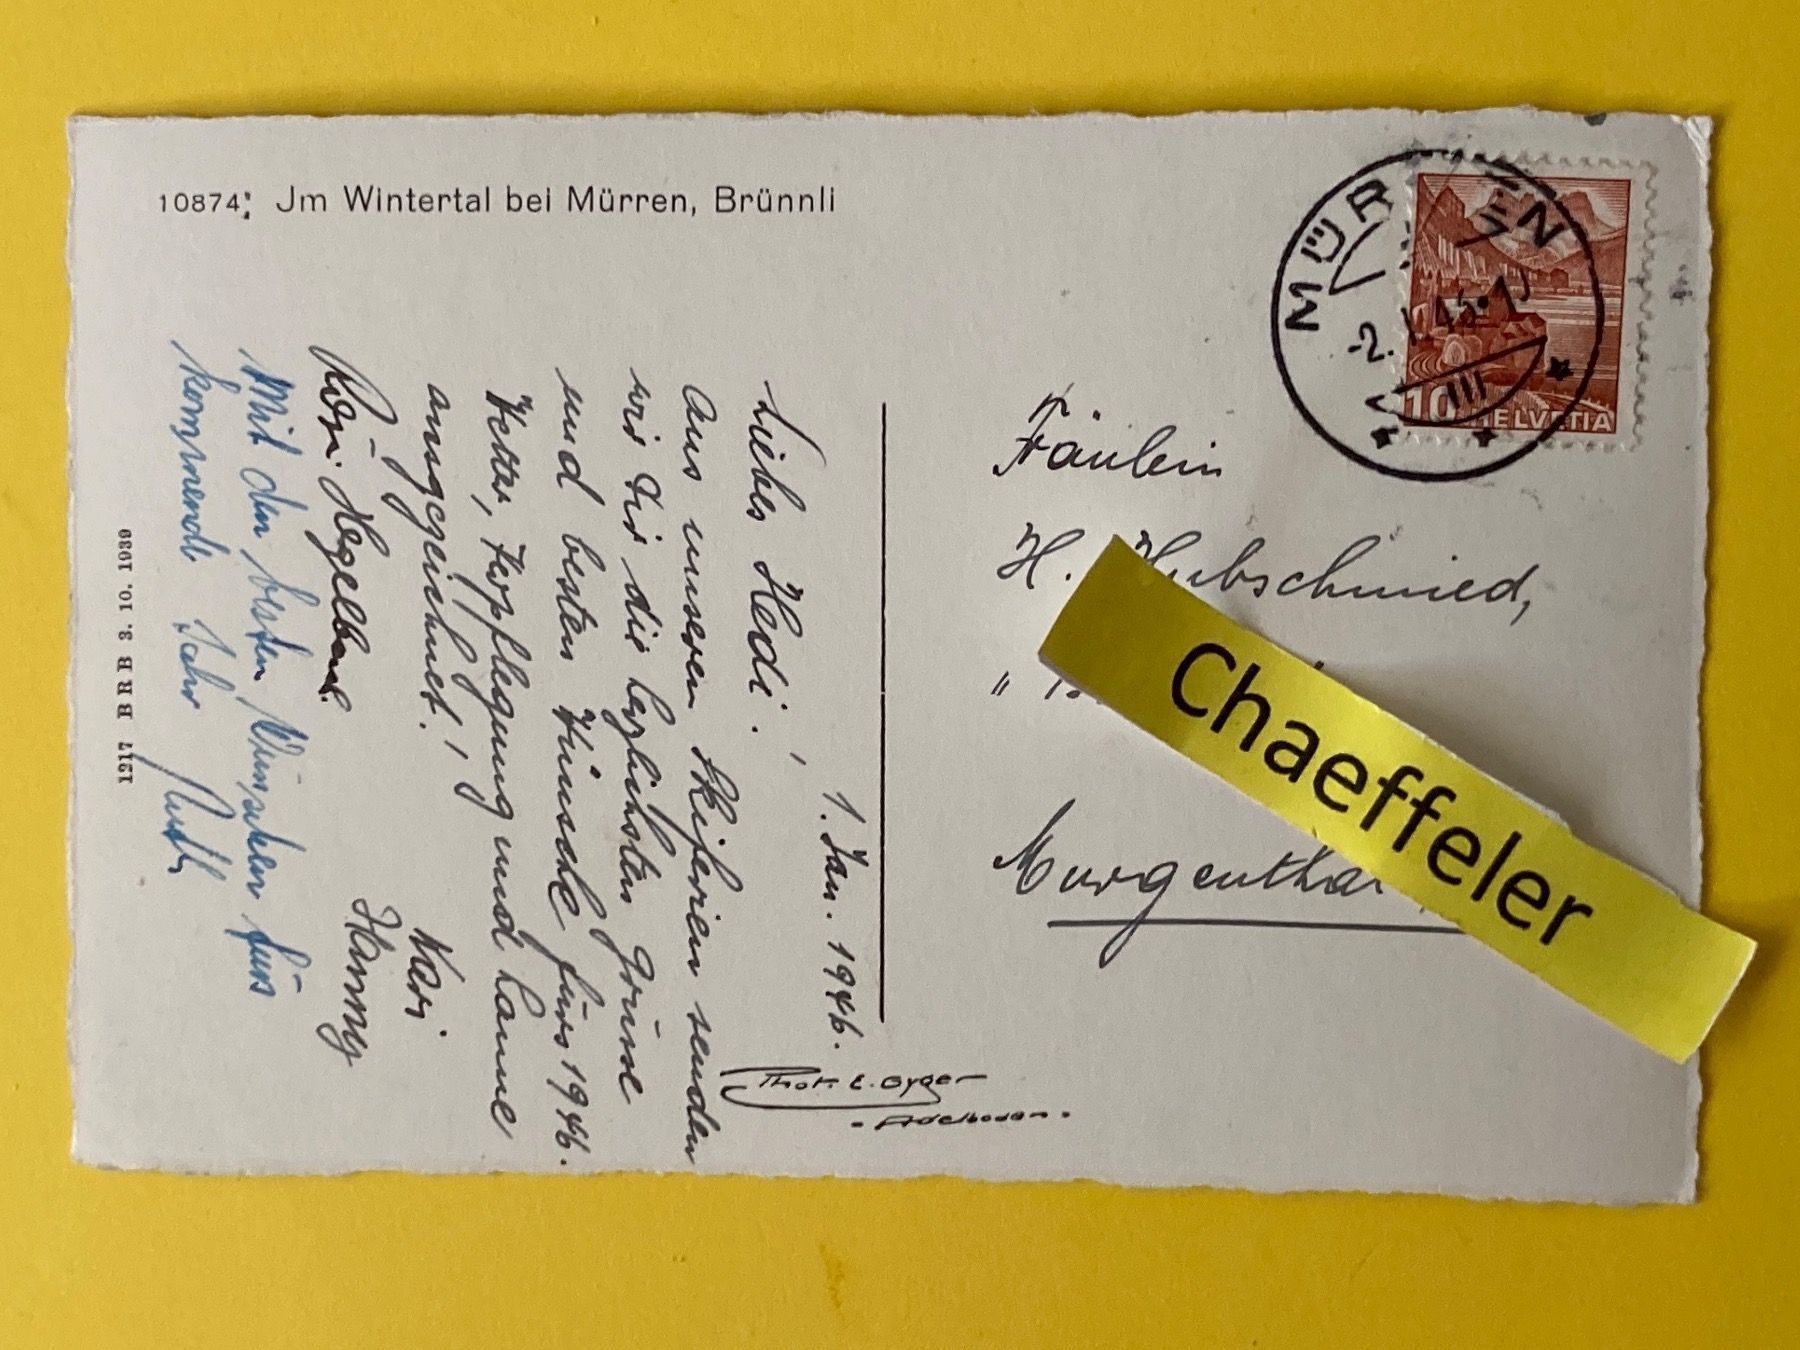 10874. Jm Wintertal bei Mürren, Brünnli
MÜRREN
-2. I. 46
III
10 HELVETIA
1. Jan. 1946.
Liebes Hedi!
Aus unseren Skiferien senden
wir Dir die herzlichsten Grüsse
und besten Wünsche fürs 1946.
Wetter, Verpflegung und Laune
ausgezeichnet!
Kari
Hanny
Rösi
Mit den besten Wünschen fürs
kommende Jahr Ruth
Fräulein
H. Hubschmied,
Murgenthal
Chaeffeler
Phot. E. Gyger
- Adelboden -
1217 BRB 3. 10. 1939